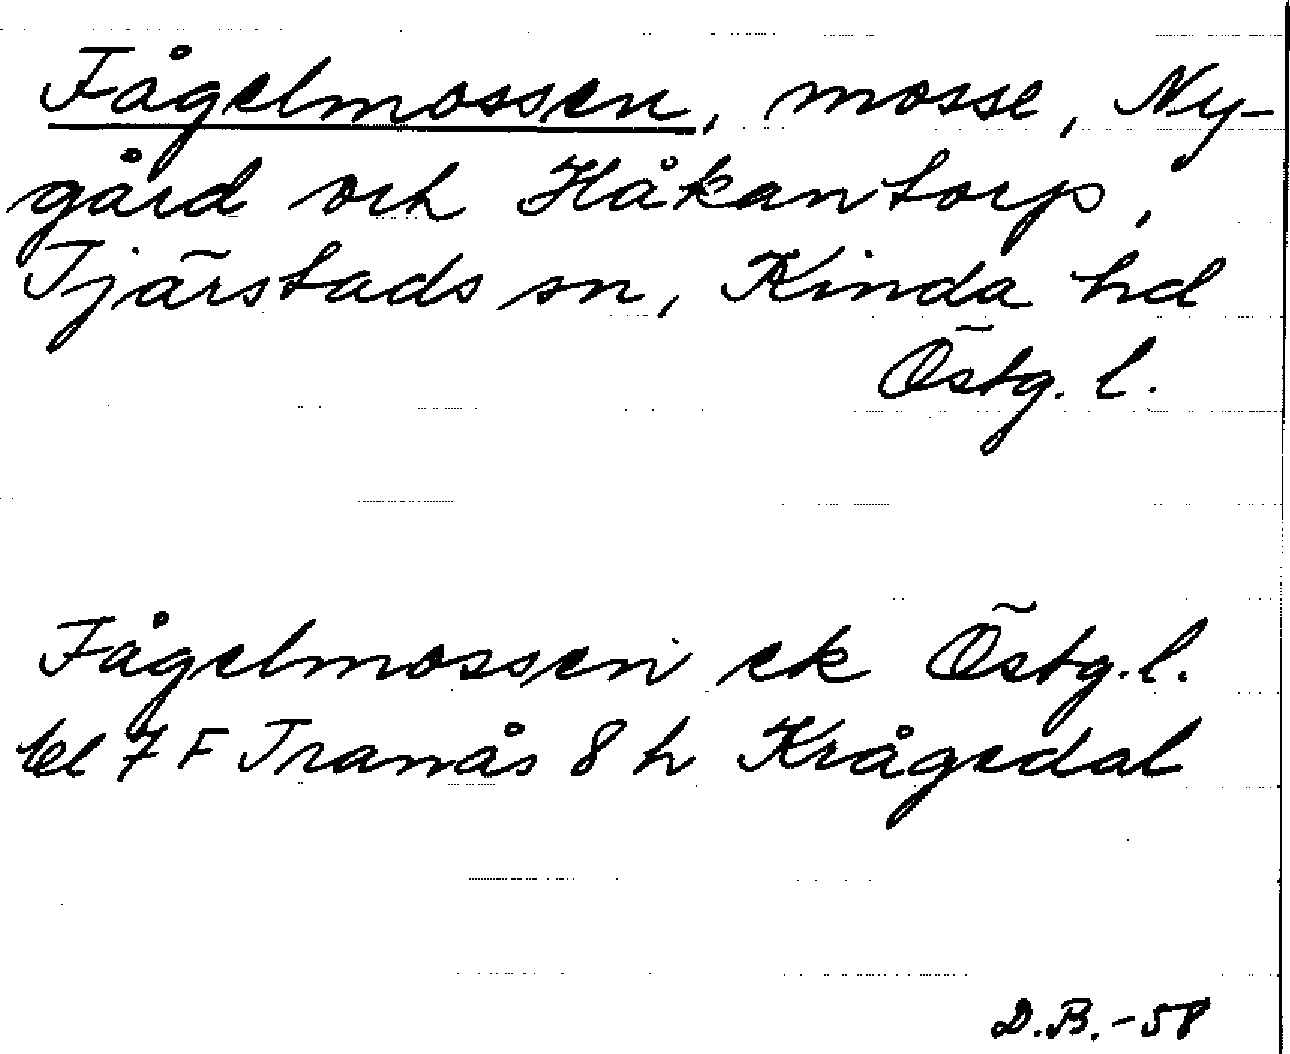 Fågelmossen, mosse, Ny-
gård och Håkantorp,
Tjärstads sn, Kinda hd
Östg. l.
Fågelmossen ek Östg. l.
bl 7 F Tranås 8 h Krågedal
D.B.-58